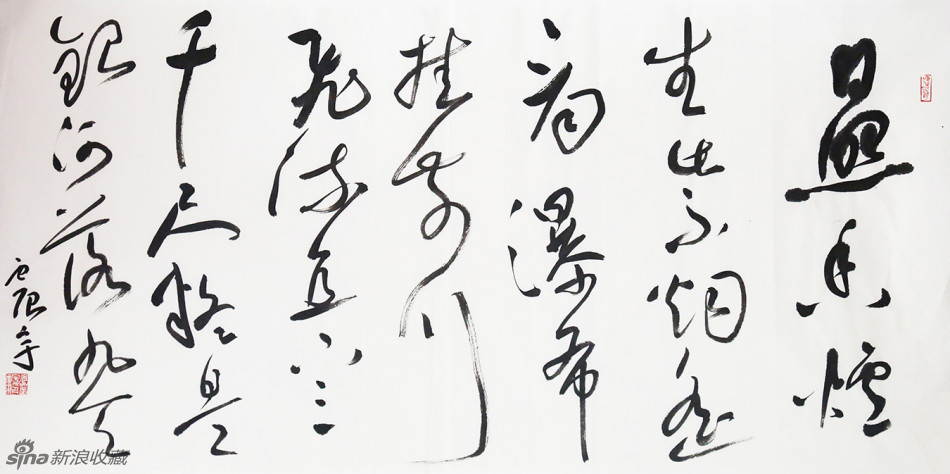 日照香爐
生紫烟遥
看瀑布
挂前川
飛流直下三
千尺疑是
銀河落九天
sina 新浪收藏